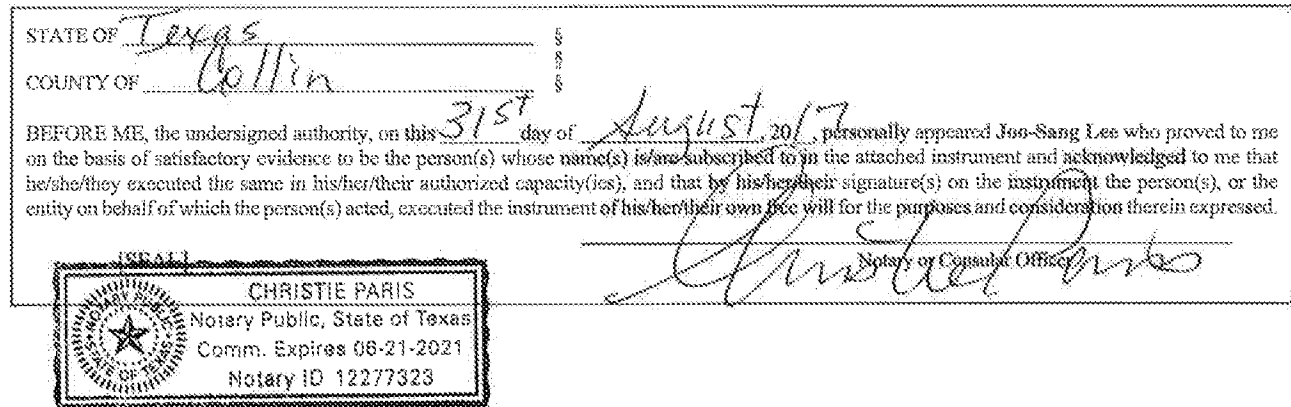 STATE OF Texas §
§
COUNTY OF Collin §
BEFORE ME, the undersigned authority, on this 31st day of August, 2017, personally appeared Joo-Sang Lee who proved to me
on the basis of satisfactory evidence to be the person(s) whose name(s) is/are subscribed to in the attached instrument and acknowledged to me that
he/she/they executed the same in his/her/their authorized capacity(ies), and that by his/her/their signature(s) on the instrument the person(s), or the
entity on behalf of which the person(s) acted, executed the instrument of his/her/their own free will for the purposes and consideration therein expressed.
[SEAL]
Christie Paris
Notary or Consular Officer
CHRISTIE PARIS
Notary Public, State of Texas
Comm. Expires 06-21-2021
Notary ID 12277323
NOTARY PUBLIC
STATE OF TEXAS